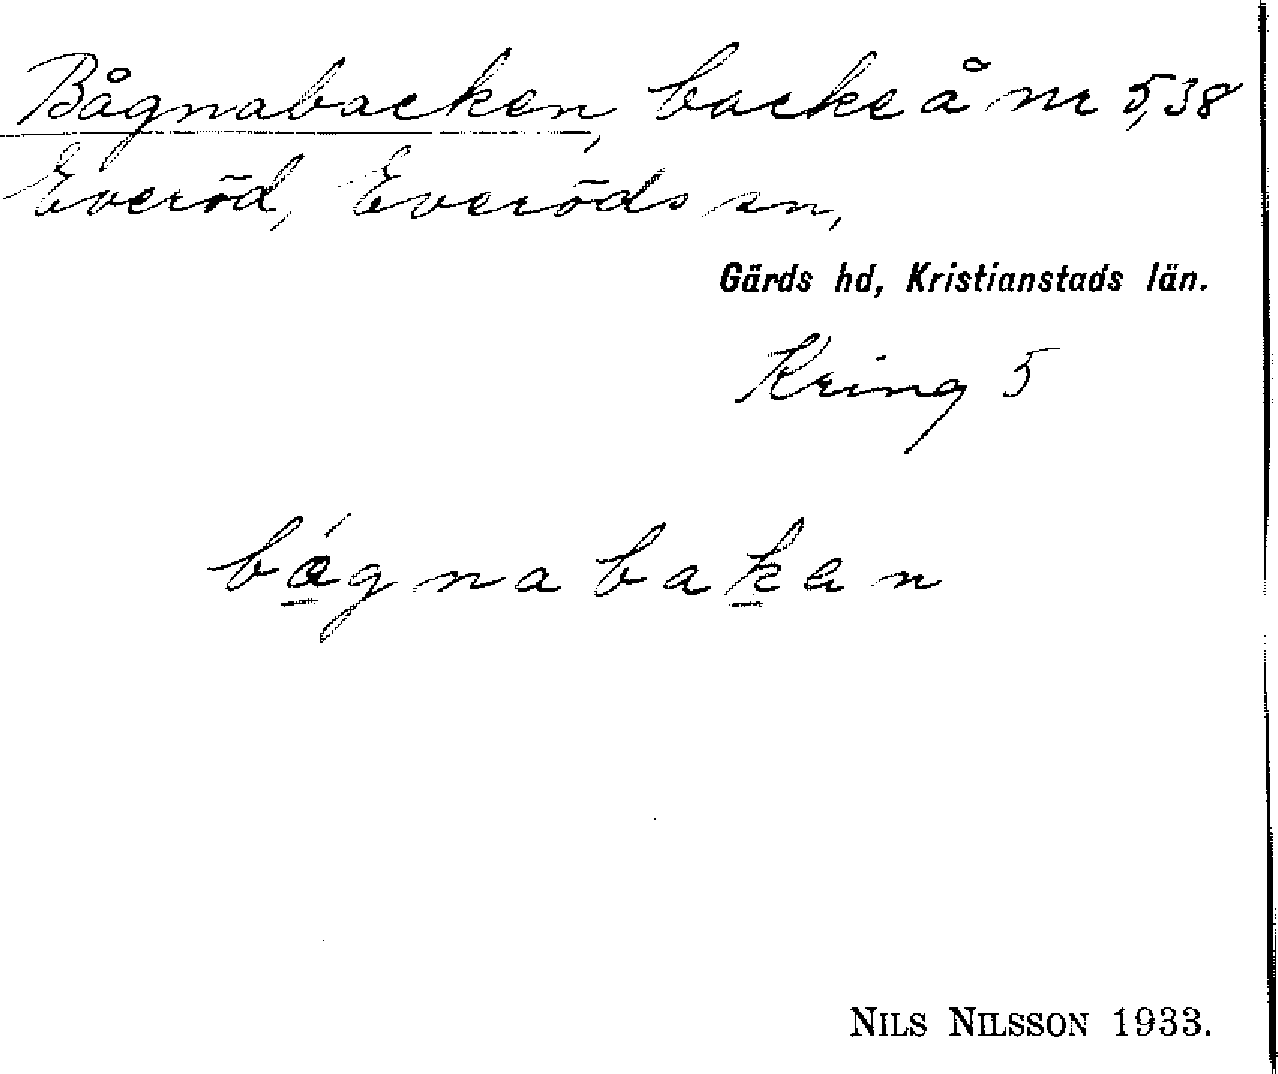 Bågnabacken, backe å nr 5,38
Everöd, Everöds sn,
Gärds hd, Kristianstads län.
Kring 5
bágnabakan
NILS NILSSON 1933.